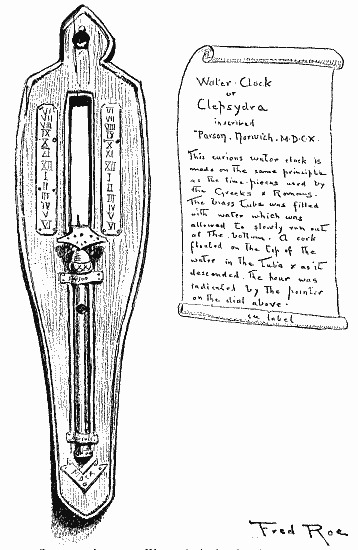 Water-Clock
or
Clepsydra
inscribed
"Parson. Norwich. M.D.C.X.
This curious water clock is
made on the same principle
as the time-pieces used by
the Greeks & Romans.
The brass tube was filled
with water which was
allowed to slowly run out
at the bottom. A cork
floated on the top of the
water in the tube & as it
descended the hour was
indicated by the pointer
on the dial above.
on label
Fred Roe